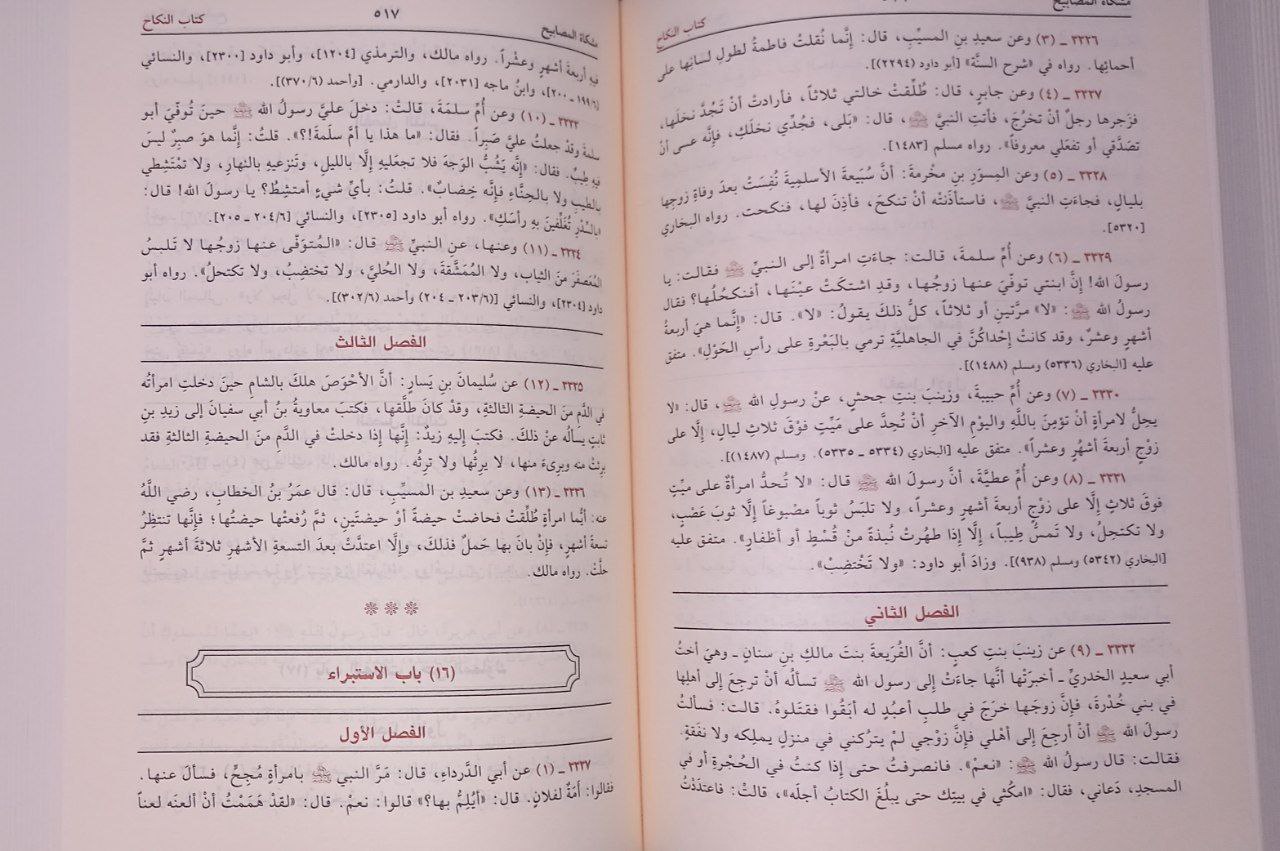 مشكاة المصابيح
كتاب النكاح
٣٣٢٦ ـ (٣) وعن سعيدِ بنِ المسيِّبِ، قال: إِنَّما نُقلتْ فاطمةُ لطولِ لسانِها على
أحمائِها. رواه في «شرح السنَّة» [أبو داود (٢٢٩٤)].
٣٣٢٧ ـ (٤) وعن جابرٍ، قال: طُلِّقتْ خالتي ثلاثاً، فأرادتْ أنْ تَجُدَّ نخلَها،
فزَجرها رجلٌ أنْ تخرُجَ، فأتتِ النبيَّ ﷺ، قال: «بَلى، فجُدِّي نخلَكِ، فإِنَّه عسى أنْ
تصَدَّقي أو تفعَلي معروفاً». رواه مسلم [١٤٨٣].
٣٣٢٨ ـ (٥) وعن المِسوَرِ بنِ مخْرمةَ: أنَّ سُبَيعَةَ الأسلميةَ نُفِسَتْ بعدَ وفاةِ زوجِها
بليالٍ، فجاءتِ النبيَّ ﷺ، فاستأذَنَتْه أنْ تنكحَ، فأذِنَ لها، فنكحت. رواه البخاري
[٥٣٢٠].
٣٣٢٩ ـ (٦) وعن أُمِّ سلمةَ، قالت: جاءَتِ امرأةٌ إلى النبيِّ ﷺ فقالت: يا
رسولَ الله! إنَّ ابنتي توفِّيَ عنها زوجُها، وقدِ اشتكتْ عينَها، أفنكحُلُها؟ فقال
رسولُ الله ﷺ: «لا» مرَّتينِ أو ثلاثاً، كلُّ ذلكَ يقولُ: «لا». قال: «إِنَّما هيَ أربعةُ
أشهرٍ وعشرٌ، وقد كانتْ إِحْداكُنَّ في الجاهليَّةِ ترمي بالبَعْرةِ على رأسِ الحَوْلِ». متفق
عليه [البخاري (٥٣٣٦) ومسلم (١٤٨٨)].
٣٣٣٠ ـ (٧) وعن أُمِّ حبيبةَ، وزينبَ بنتِ جحشٍ، عنْ رسولِ الله ﷺ، قال: «لا
يحِلُّ لامرأةٍ أنْ تؤمِنَ باللَّهِ واليومِ الآخرِ أنْ تُحِدَّ على مَيِّتٍ فوْقَ ثلاثِ ليالٍ، إِلَّا على
زوْجٍ أربعةَ أشهُرٍ وعشراً». متفق عليه [البخاري (٥٣٣٤ ـ ٥٣٣٥). ومسلم (١٤٨٧)].
٣٣٣١ ـ (٨) وعن أُمِّ عطيَّةَ، أنَّ رسولَ الله ﷺ قال: «لا تُحِدُّ امرأةٌ على ميِّتٍ
فوقَ ثلاثٍ إِلَّا على زوْجٍ أربعةَ أشهرٍ وعشراً، ولا تلبَسُ ثوباً مصْبوغاً إِلَّا ثوبَ عَصْبٍ،
ولا تكتحلُ، ولا تمَسُّ طِيباً، إِلَّا إِذا طهُرتْ نُبذةً منْ قُسْطٍ أو أظفارٍ». متفق عليه
[البخاري (٥٣٤٢) ومسلم (٩٣٨)]. وزادَ أبو داود: «ولا تَخْتضِبْ».
الفصل الثاني
٣٣٣٢ ـ (٩) عن زينبَ بنتِ كعبٍ: أنَّ الفُرَيعةَ بنتَ مالكِ بنِ سنانٍ ـ وهيَ أختُ
أبي سعيدٍ الخدريِّ ـ أخبرَتْها أنَّها جاءَتْ إلى رسولِ الله ﷺ تسألُه أنْ ترجعَ إلى أهلِها
في بني خُدْرةَ، فإِنَّ زوجَها خرَجَ في طلبِ أعبُدٍ له أبَقُوا فقتَلوهُ. قالت: فسألتُ
رسولَ الله ﷺ أنْ أرجِعَ إلى أهْلي فإنَّ زوْجي لمْ يترُكني في منزلٍ يملِكه ولا نفَقةٍ.
فقالت: قال رسولُ الله ﷺ: «نعمْ». فانصرفتُ حتى إِذا كنتُ في الحُجْرةِ أو في
المسجدِ، دَعاني، فقال: «امكُثي في بيتِك حتى يبلُغَ الكتابُ أجلَه»، قالتْ: فاعتدَدْتُ
مشكاة المصابيح
٥١٧
كتاب النكاح
فيهِ أربعةَ أشهرٍ وعشْراً. رواه مالك، والترمذي [١٢٠٤]، وأبو داود [٢٣٠٠]، والنسائي
[١٩٩/٦ ـ ٢٠٠]، وابنُ ماجه [٢٠٣١]، والدارمي. [وأحمد (٣٧٠/٦)].
٣٣٣٣ ـ (١٠) وعن أُمِّ سلمةَ، قالتْ: دخلَ عليَّ رسولُ الله ﷺ حينَ تُوفِّيَ أبو
سلمةَ وقدْ جعلتُ عليَّ صَبِراً. فقال: «ما هذا يا أمَّ سلَمةَ!؟». قلتُ: إِنَّما هو صبِرٌ ليسَ
فيهِ طِيبٌ. فقال: «إِنَّه يَشُبُّ الوَجهَ فلا تجعَليهِ إلَّا بالليلِ، وتَنزعيهِ بالنهارِ، ولا تمْتَشِطي
بالطيبِ ولا بالحِنَّاءِ فإِنَّه خِضابٌ». قلتُ: بأيِّ شيءٍ أمتشِطُ؟ يا رسولَ الله! قال:
«بالسِّدْرِ تُغَلِّفينَ بهِ رأسَكِ». رواه أبو داود [٢٣٠٥]، والنسائي [٢٠٤/٦ ـ ٢٠٥].
٣٣٣٤ ـ (١١) وعنها، عنِ النبيِّ ﷺ قال: «المُتوَفّى عنها زوجُها لا تَلبسُ
المُعَصفَرَ منَ الثيابِ، ولا المُمَشَّقةَ، ولا الحُليَّ، ولا تختضِبُ، ولا تكتحلُ». رواه أبو
داود [٢٣٠٤]، والنسائي [(٢٠٣/٦ ـ ٢٠٤) وأحمد (٣٠٢/٦)].
الفصل الثالث
٣٣٣٥ ـ (١٢) عن سُليمانَ بنِ يَسارٍ: أنَّ الأحْوَصَ هلكَ بالشامِ حينَ دخلتِ امرأتُه
في الدَّمِ منَ الحيضةِ الثالثةِ، وقدْ كانَ طلَّقها، فكتبَ معاويةُ بنُ أبي سفيانَ إلى زيدِ بنِ
ثابتٍ يسألُه عنْ ذلكَ. فكتبَ إليهِ زيدٌ: إِنَّها إذا دخلتْ في الدَّمِ منَ الحيضةِ الثالثةِ فقد
برئتْ منه وبرىءَ منها، لا يرِثُها ولا ترِثُه. رواه مالك.
٣٣٣٦ ـ (١٣) وعن سعيدِ بنِ المسيِّبِ، قال: قال عمَرُ بنُ الخطابِ، رضي اللَّهُ
عنه: أيُّما امرأةٍ طُلِّقتْ فحاضتْ حيضةً أوْ حيضتَينِ، ثمَّ رُفعتْها حيضتُها؛ فإِنَّها تنتظِرُ
تسعةَ أشهرٍ، فإِنْ بانَ بها حَملٌ فذلكَ، وإِلَّا اعتدَّتْ بعدَ التسعةِ الأشهرِ ثلاثةَ أشهرٍ ثمَّ
حلَّتْ. رواه مالك.
❊❊❊
(١٦) باب الاستبراء
الفصل الأول
٣٣٣٧ ـ (١) عن أبي الدَّرداءِ، قال: مَرَّ النبي ﷺ بامرأةٍ مُجِحٍّ، فسألَ عنها.
فقالوا: أمَةٌ لفلانٍ. قال: «أيُلِمُّ بها؟» قالوا: نعمْ. قال: «لقدْ هَمَمْتُ أنْ ألعنَه لعناً